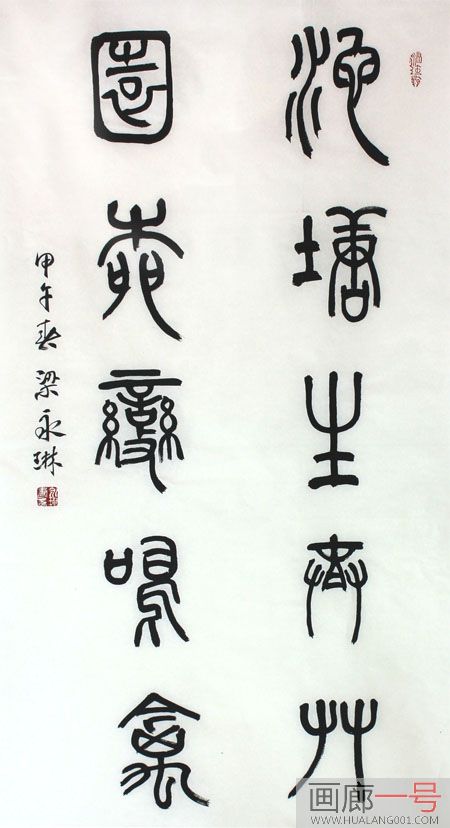 池塘生春草
園柳變鳴禽
甲午春 梁永琳
画廊一号
WWW.HUALANG001.COM